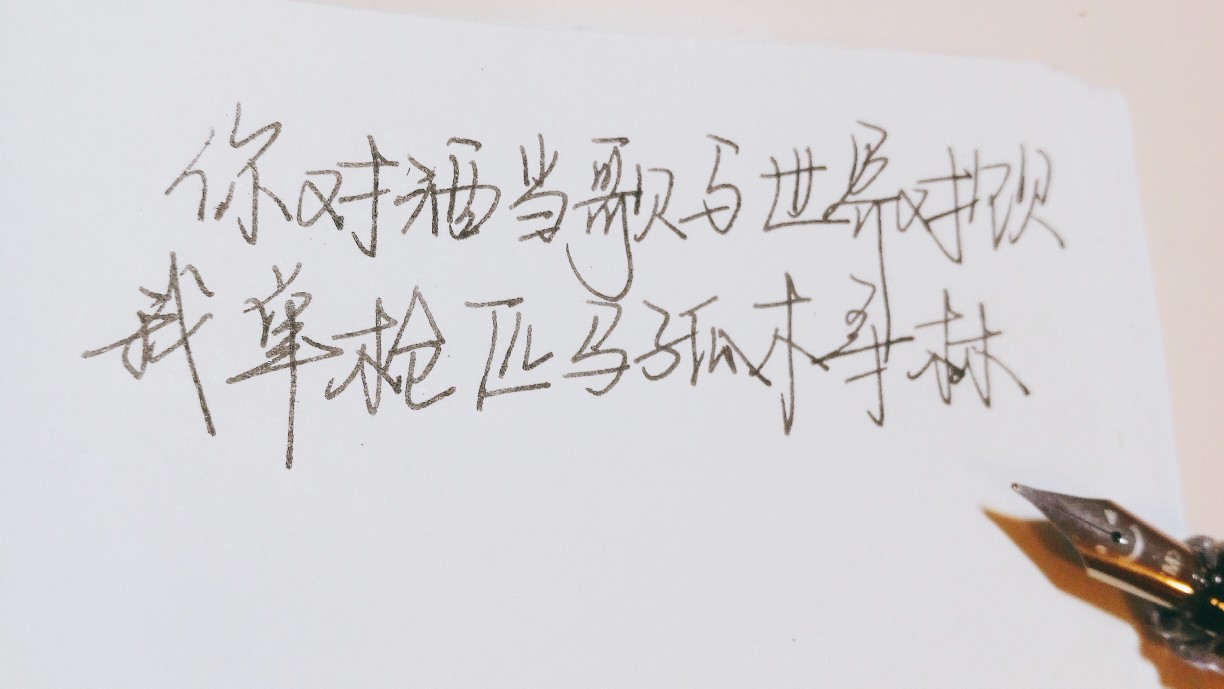 你对酒当歌与世界对抗
我单枪匹马孤木寻林